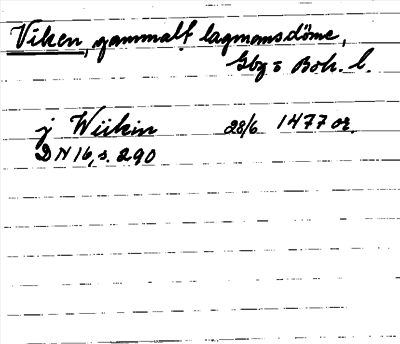 Viken, gammalt lagmansdöme,
Gbg o Boh. l.
j Wiikin 28/6 1477 or.
DN 16, s. 290